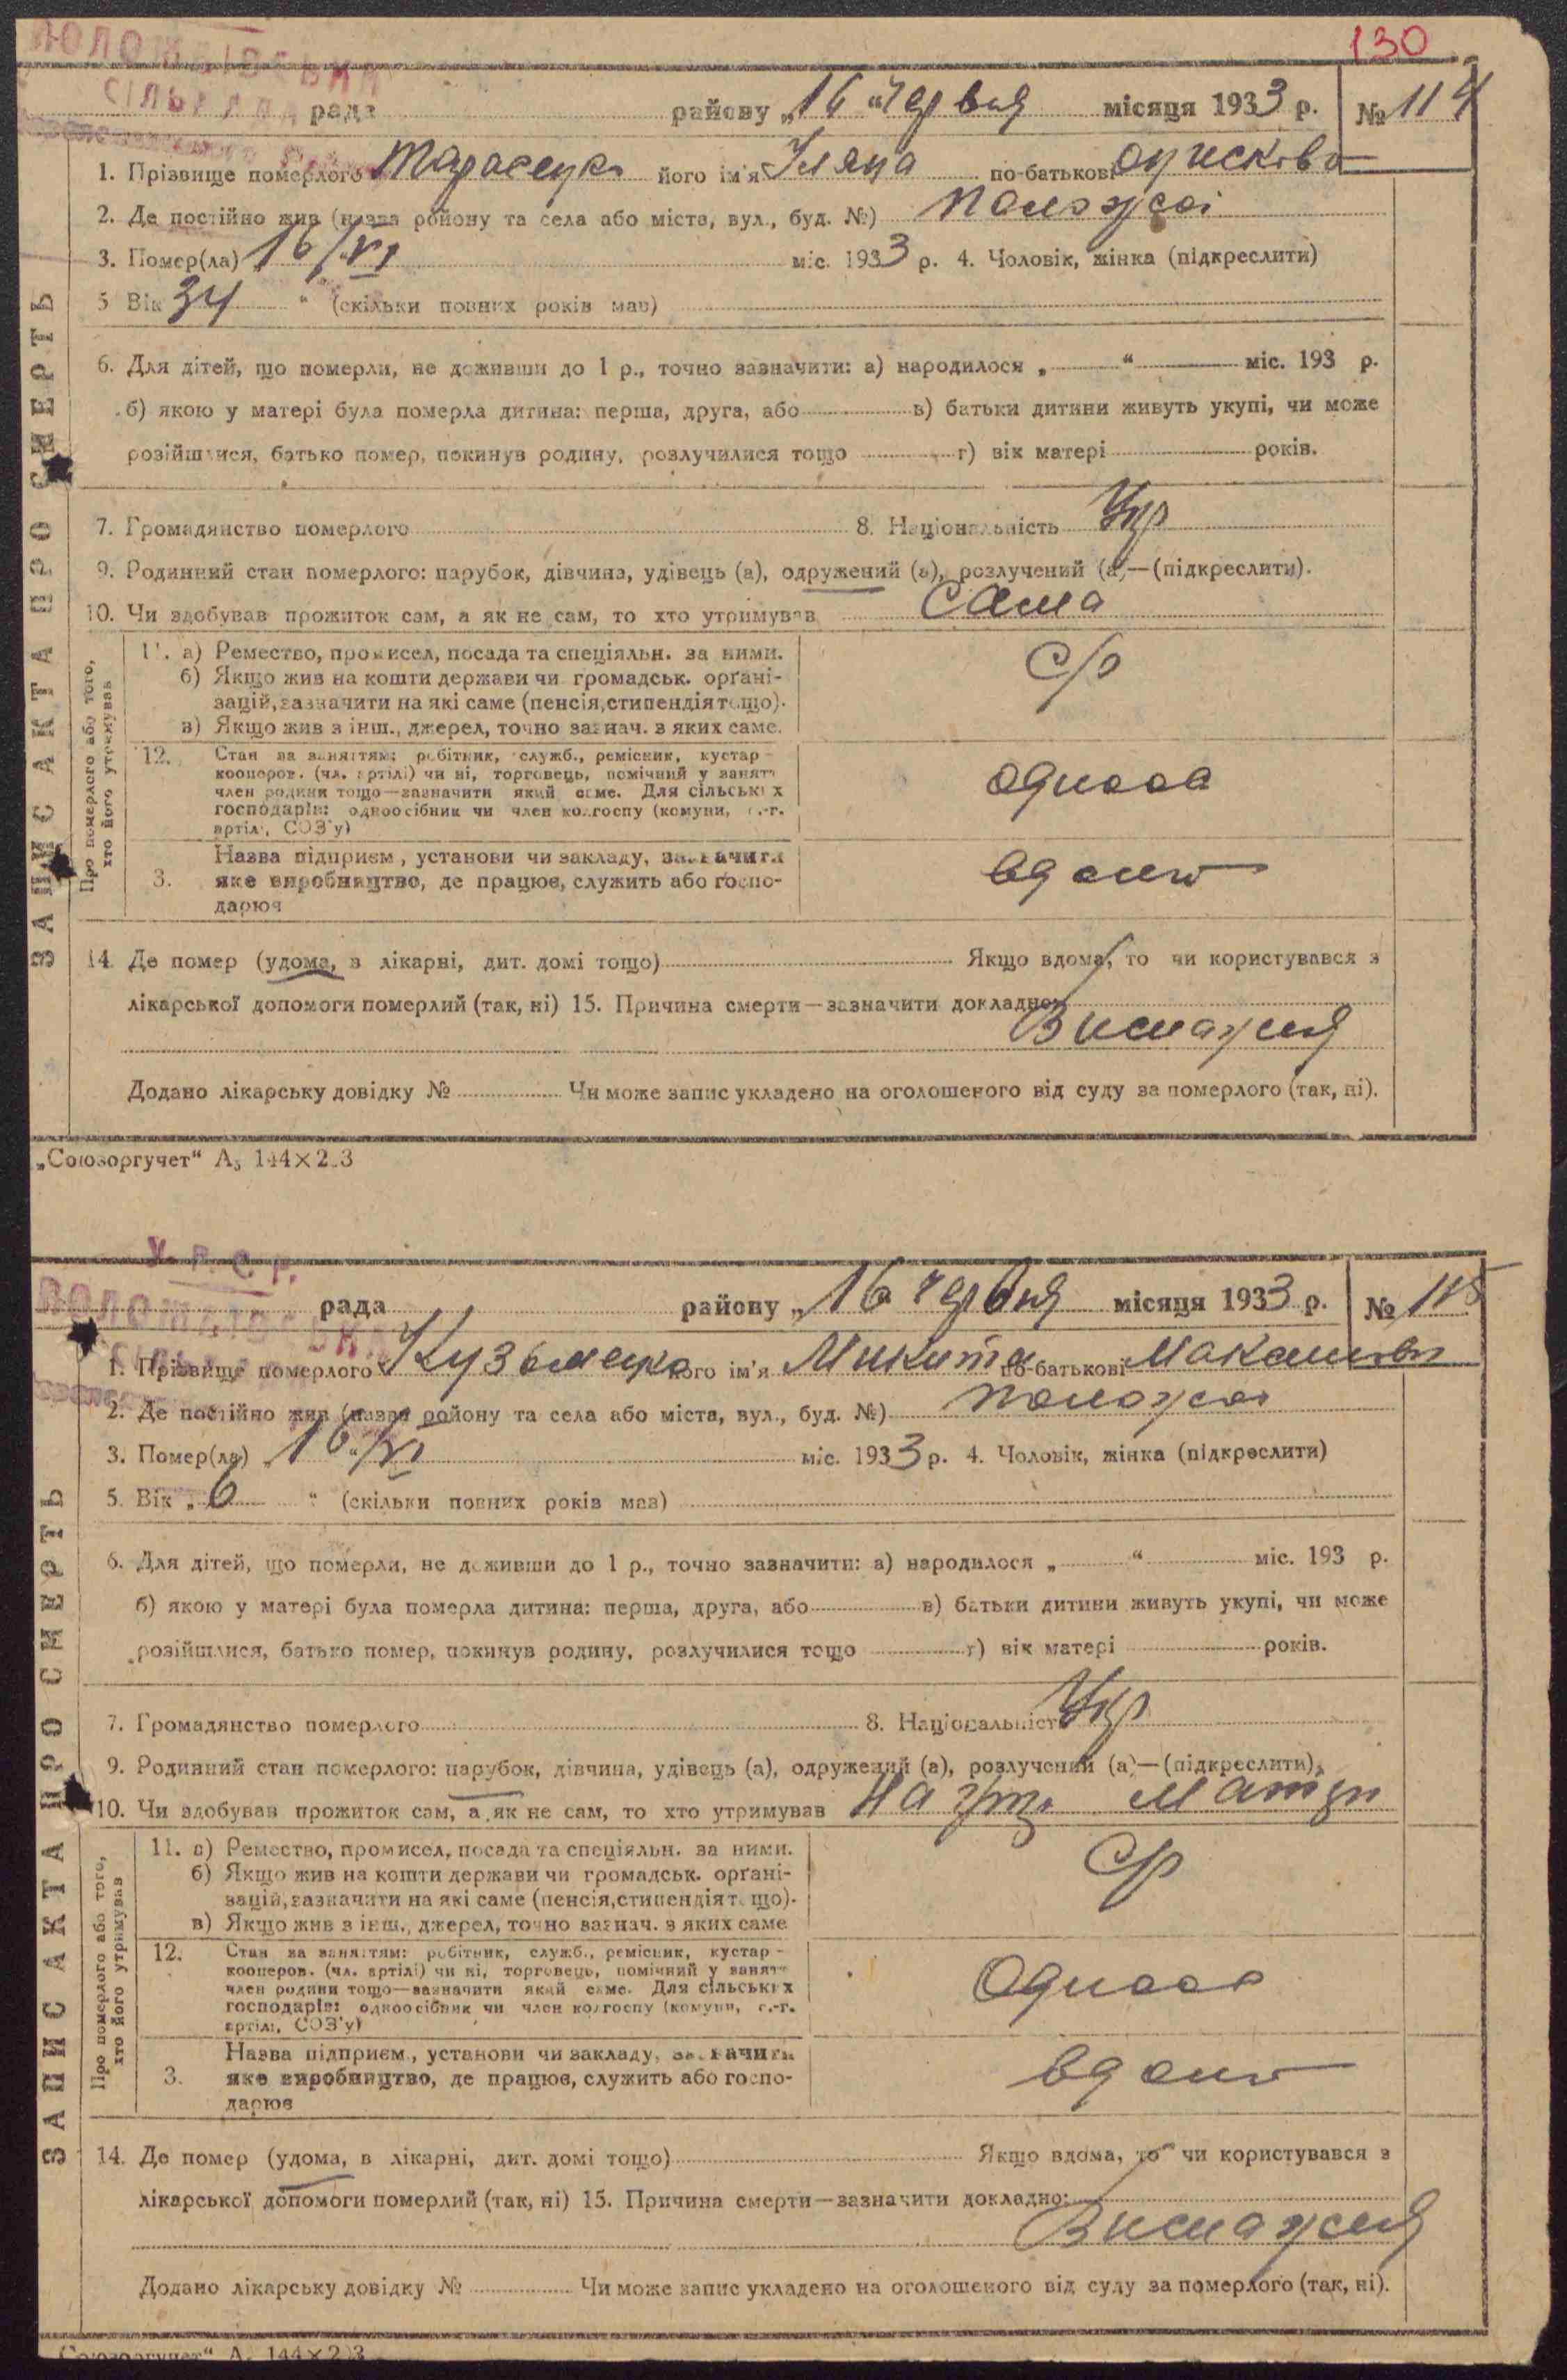 130
СІЛЬРАДА
рада районy „16 "червня місяця 1933 р. № 114
1. Прізвище померлого Тарасенко його ім'я Уляна по-батькові
2. Де постійно жив (назва району та села або міста, вул., буд. №) Положаї
3. Помер(ла) 16/VI міс. 1933 р. 4. Чоловік, жінка (підкреслити)
5 Вік 34 " (скільки повних років мав)
6. Для дітей, що померли, не доживши до 1 р., точно зазначити: а) народилося „ " міс. 193 р.
б) якою у матері була померла дитина: перша, друга, або в) батьки дитини живуть укупі, чи може
розійшлися, батько помер, покинув родину, розлучилися тощо г) вік матері років.
7. Громадянство померлого 8. Національність Укр
9. Родинний стан померлого: парубок, дівчина, удівець (а), одружений (а), розлучений (а)—(підкреслити).
10. Чи здобував прожиток сам, а як не сам, то хто утримував сама
ЗАПИС АКТА ПРО СМЕРТЬ
Про померлого або того, хто його утримував
11. а) Ремество, промисел, посада та спеціяльн. за ними.
б) Якщо жив на кошти держави чи громадськ. органі-
зацій, зазначити на які саме (пенсія, стипендія тощо).
в) Якщо жив з інш., джерел, точно зазнач. з яких саме.
С/р
12. Стан за заняттям: робітник, служб., реміcник, кустар -
кооперов. (чл. артілі) чи ні, торговець, помічний у занятт
член родини тощо—зазначити який саме. Для сільських
господарів: одноосібник чи член колгоспу (комуни, с.-г.
артілі, СОЗ'у)
одноос
3. Назва підприєм., установи чи закладу, зазначити
яке виробництво, де працює, служить або госпо-
дарює
14. Де помер (удома, в лікарні, дит. домі тощо) Якщо вдома, то чи користувався з
лікарської допомоги померлий (так, ні) 15. Причина смерти—зазначити докладно:
Виснажня
Додано лікарську довідку № Чи може запис укладено на оголошеного від суду за померлого (так, ні).
„Союзоргучет" А₅ 144×203
У. С. С. Р.
рада районy „16 червня місяця 1933 р. № 115
1. Прізвище померлого Кузьменко його ім'я Микита по-батькові Максимов
2. Де постійно жив (назва району та села або міста, вул., буд. №) Положаї
3. Помер(ла) „16"/VI міс. 1933 р. 4. Чоловік, жінка (підкреслити)
5. Вік „6 " (скільки повних років мав)
6. Для дітей, що померли, не доживши до 1 р., точно зазначити: а) народилося „ " міс. 193 р.
б) якою у матері була померла дитина: перша, друга, або в) батьки дитини живуть укупі, чи може
розійшлися, батько помер, покинув родину, розлучилися тощо г) вік матері років.
7. Громадянство померлого 8. Національність Укр
9. Родинний стан померлого: парубок, дівчина, удівець (а), одружений (а), розлучений (а)—(підкреслити).
10. Чи здобував прожиток сам, а як не сам, то хто утримував На утр. Матери
ЗАПИС АКТА ПРО СМЕРТЬ
Про померлого або того, хто його утримував
11. а) Ремество, промисел, посада та спеціяльн. за ними.
б) Якщо жив на кошти держави чи громадськ. органі-
зацій, зазначити на які саме (пенсія, стипендія тощо).
в) Якщо жив з інш., джерел, точно зазнач. з яких саме
С/р
12. Стан за заняттям: робітник, служб., реміcник, кустар -
кооперов. (чл. артілі) чи ні, торговець, помічний у занятт
член родини тощо—зазначити який саме. Для сільських
господарів: одноосібник чи член колгоспу (комуни, с.-г.
артілі, СОЗ'у)
Одноос
3. Назва підприєм., установи чи закладу, зазначити
яке виробництво, де працює, служить або госпо-
дарює
14. Де помер (удома, в лікарні, дит. домі тощо) Якщо вдома, то чи користувався з
лікарської допомоги померлий (так, ні) 15. Причина смерти—зазначити докладно:
Виснажня
Додано лікарську довідку № Чи може запис укладено на оголошеного від суду за померлого (так, ні).
„Союзоргучет" А₅ 144×203